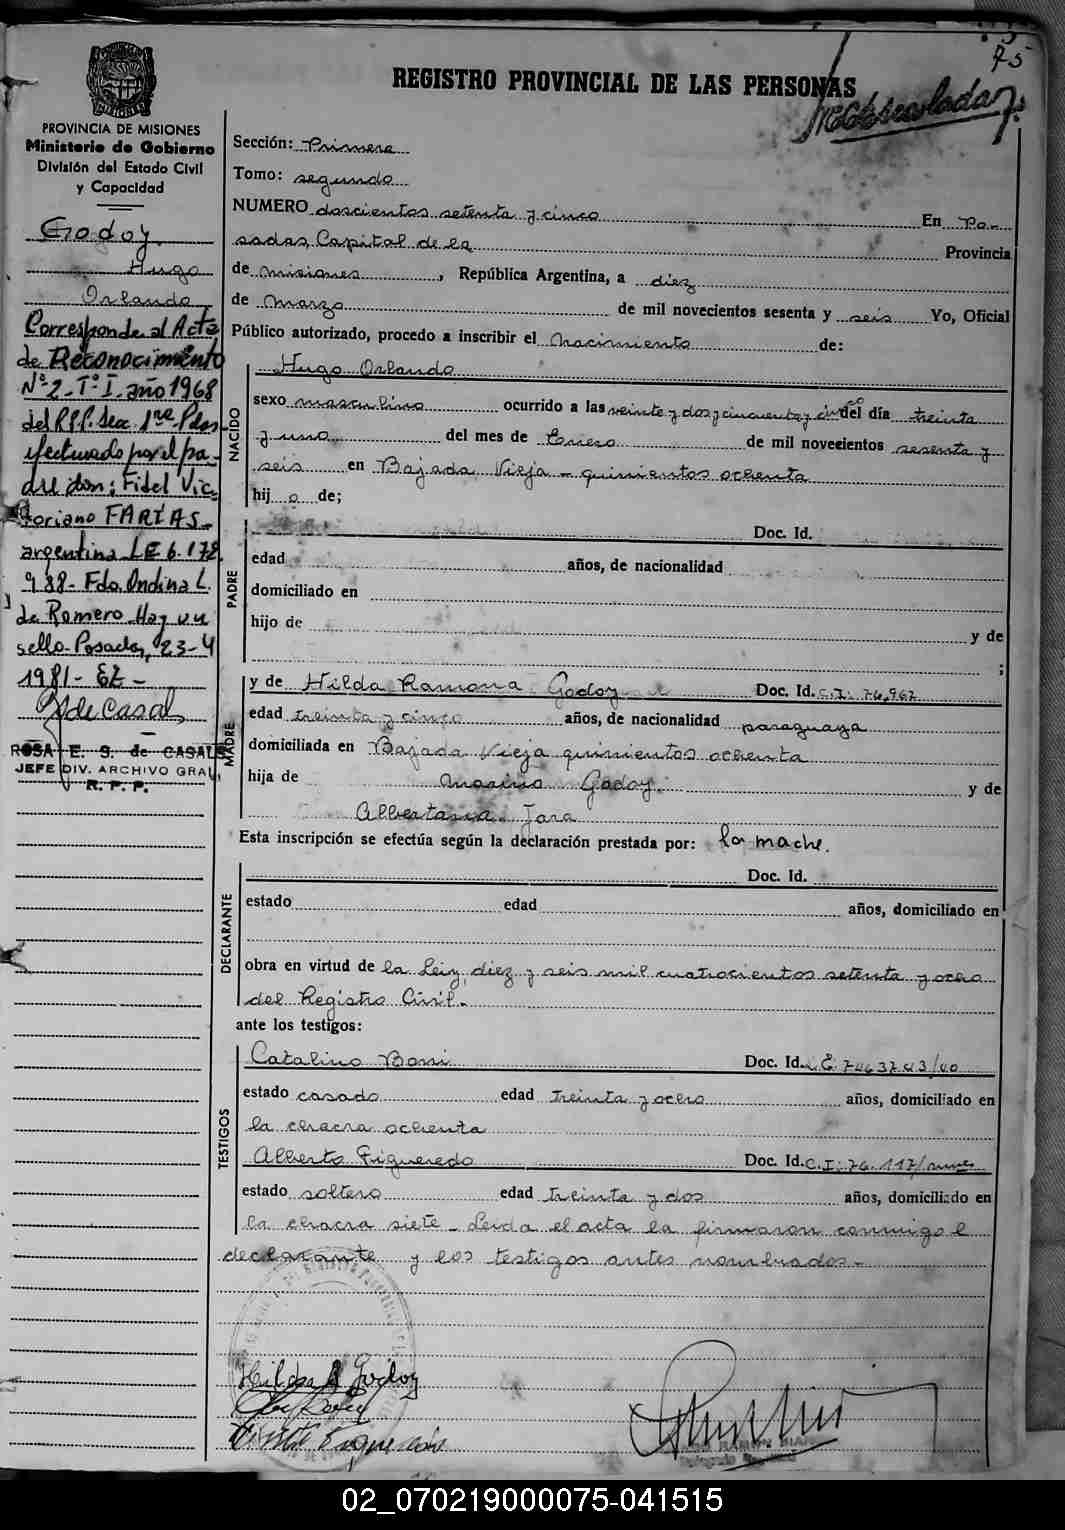 75
REGISTRO PROVINCIAL DE LAS PERSONAS
PROVINCIA DE MISIONES
Ministerio de Gobierno
División del Estado Civil
y Capacidad
Godoy
Hugo
Orlando
Corresponde al Acta
de Reconocimiento
Nº 2-Tº I-año 1968
del R.P.P. Secc. 1ra Pdas-
efectuado por el pa-
dre don: Fidel Vic-
toriano FARIAS-
argentina LE 6.178.
988- Fdo. Ondina L.
de Romero-Hay un
sello-Posadas, 23-4
1981-
de Casals
ROSA E. S. de CASALS
JEFE DIV. ARCHIVO GRAL.
R. P. P.
Sección: Primera
Tomo: segundo
NUMERO doscientos setenta y cinco En Po-
sadas, Capital de la Provincia
de misiones, República Argentina, a diez
de marzo de mil novecientos sesenta y seis Yo, Oficial
Público autorizado, procedo a inscribir el nacimiento de:
NACIDO
Hugo Orlando
sexo masculino ocurrido a las veinte y dos y cincuenta y cinco del día treinta
y uno del mes de Enero de mil novecientos sesenta y
seis en Bajada Vieja - quinientos ochenta
hij o de;
PADRE
Doc. Id.
edad años, de nacionalidad
domiciliado en
hijo de y de
;
MADRE
y de Hilda Ramona Godoy Doc. Id. C.I. 74,967
edad treinta y cinco años, de nacionalidad paraguaya
domiciliada en Bajada Vieja quinientos ochenta
hija de Godoy y de
Jara
Esta inscripción se efectúa según la declaración prestada por: la madre.
DECLARANTE
Doc. Id.
estado edad años, domiciliado en
obra en virtud de la Ley diez y seis mil cuatrocientos setenta y ocho
del Registro Civil.-
ante los testigos:
TESTIGOS
Catalino Doc. Id.
estado casado edad treinta y ocho años, domiciliado en
la chacra ochenta
Alberto Figueredo Doc. Id. C.I: 76.117/
estado soltero edad treinta y dos años, domiciliado en
la chacra siete - Leida el acta la firmaron conmigo el
declarante y los testigos antes nombrados.-
Hilda R Godoy
Figueredo
02_070219000075-041515